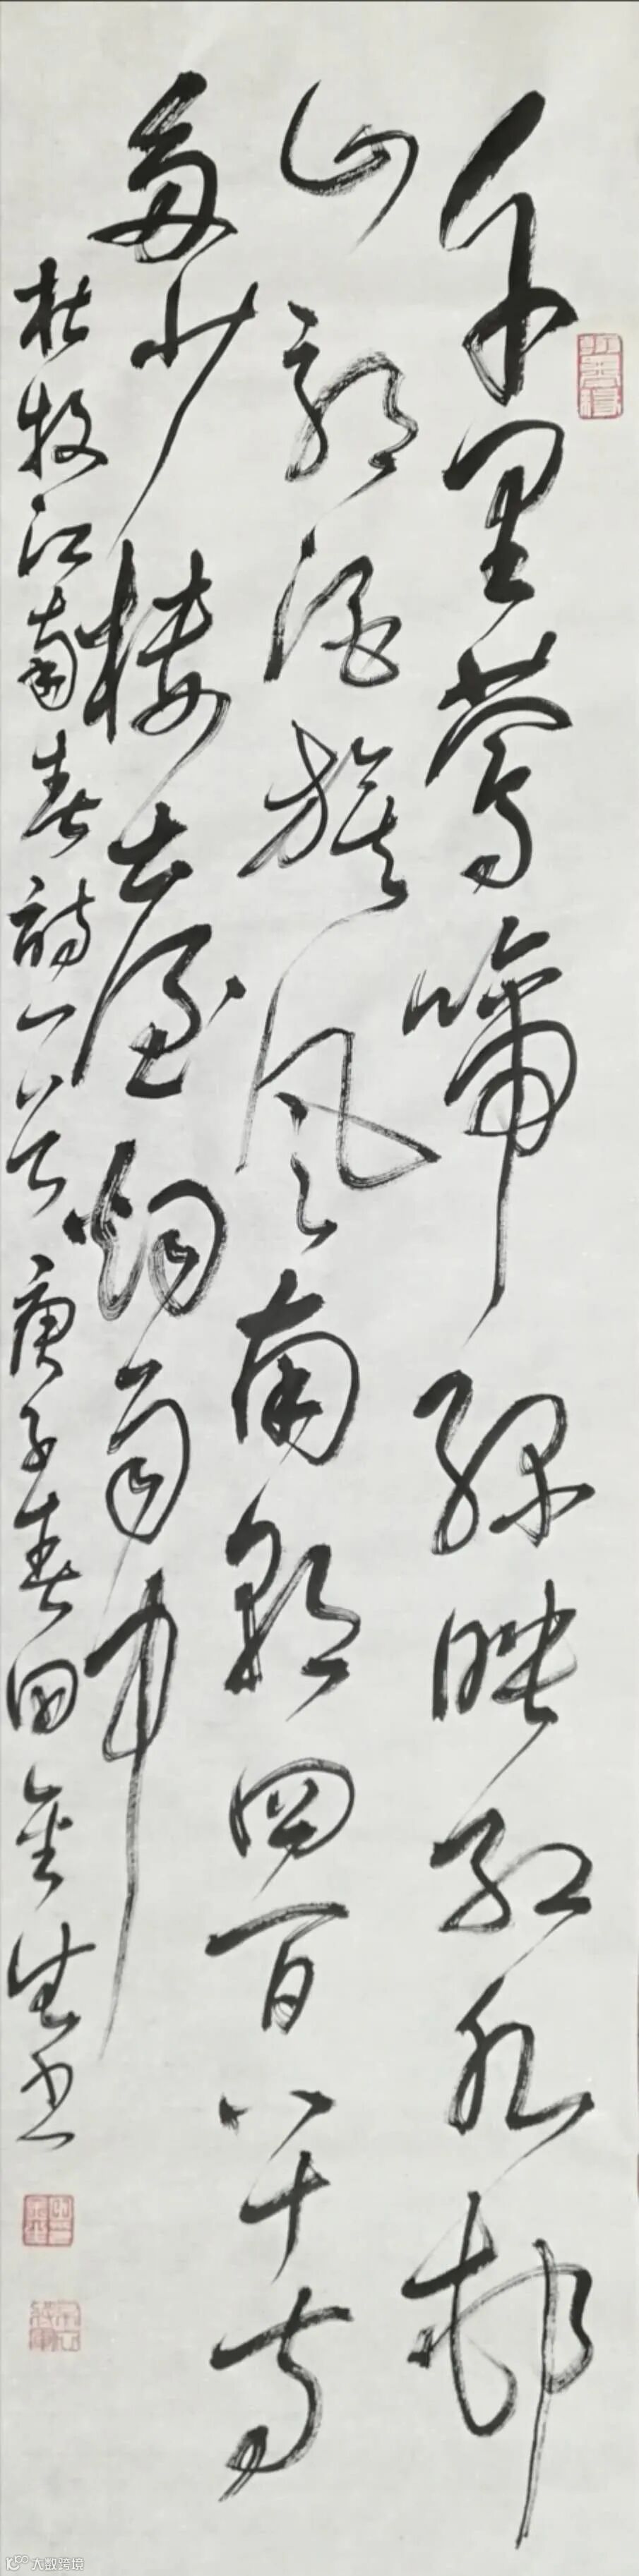 千里莺啼绿映红水村
山郭酒旗风南朝四百八十寺
多少楼台烟雨中
杜牧江南春诗一首庚子春田金生书
大数跨境